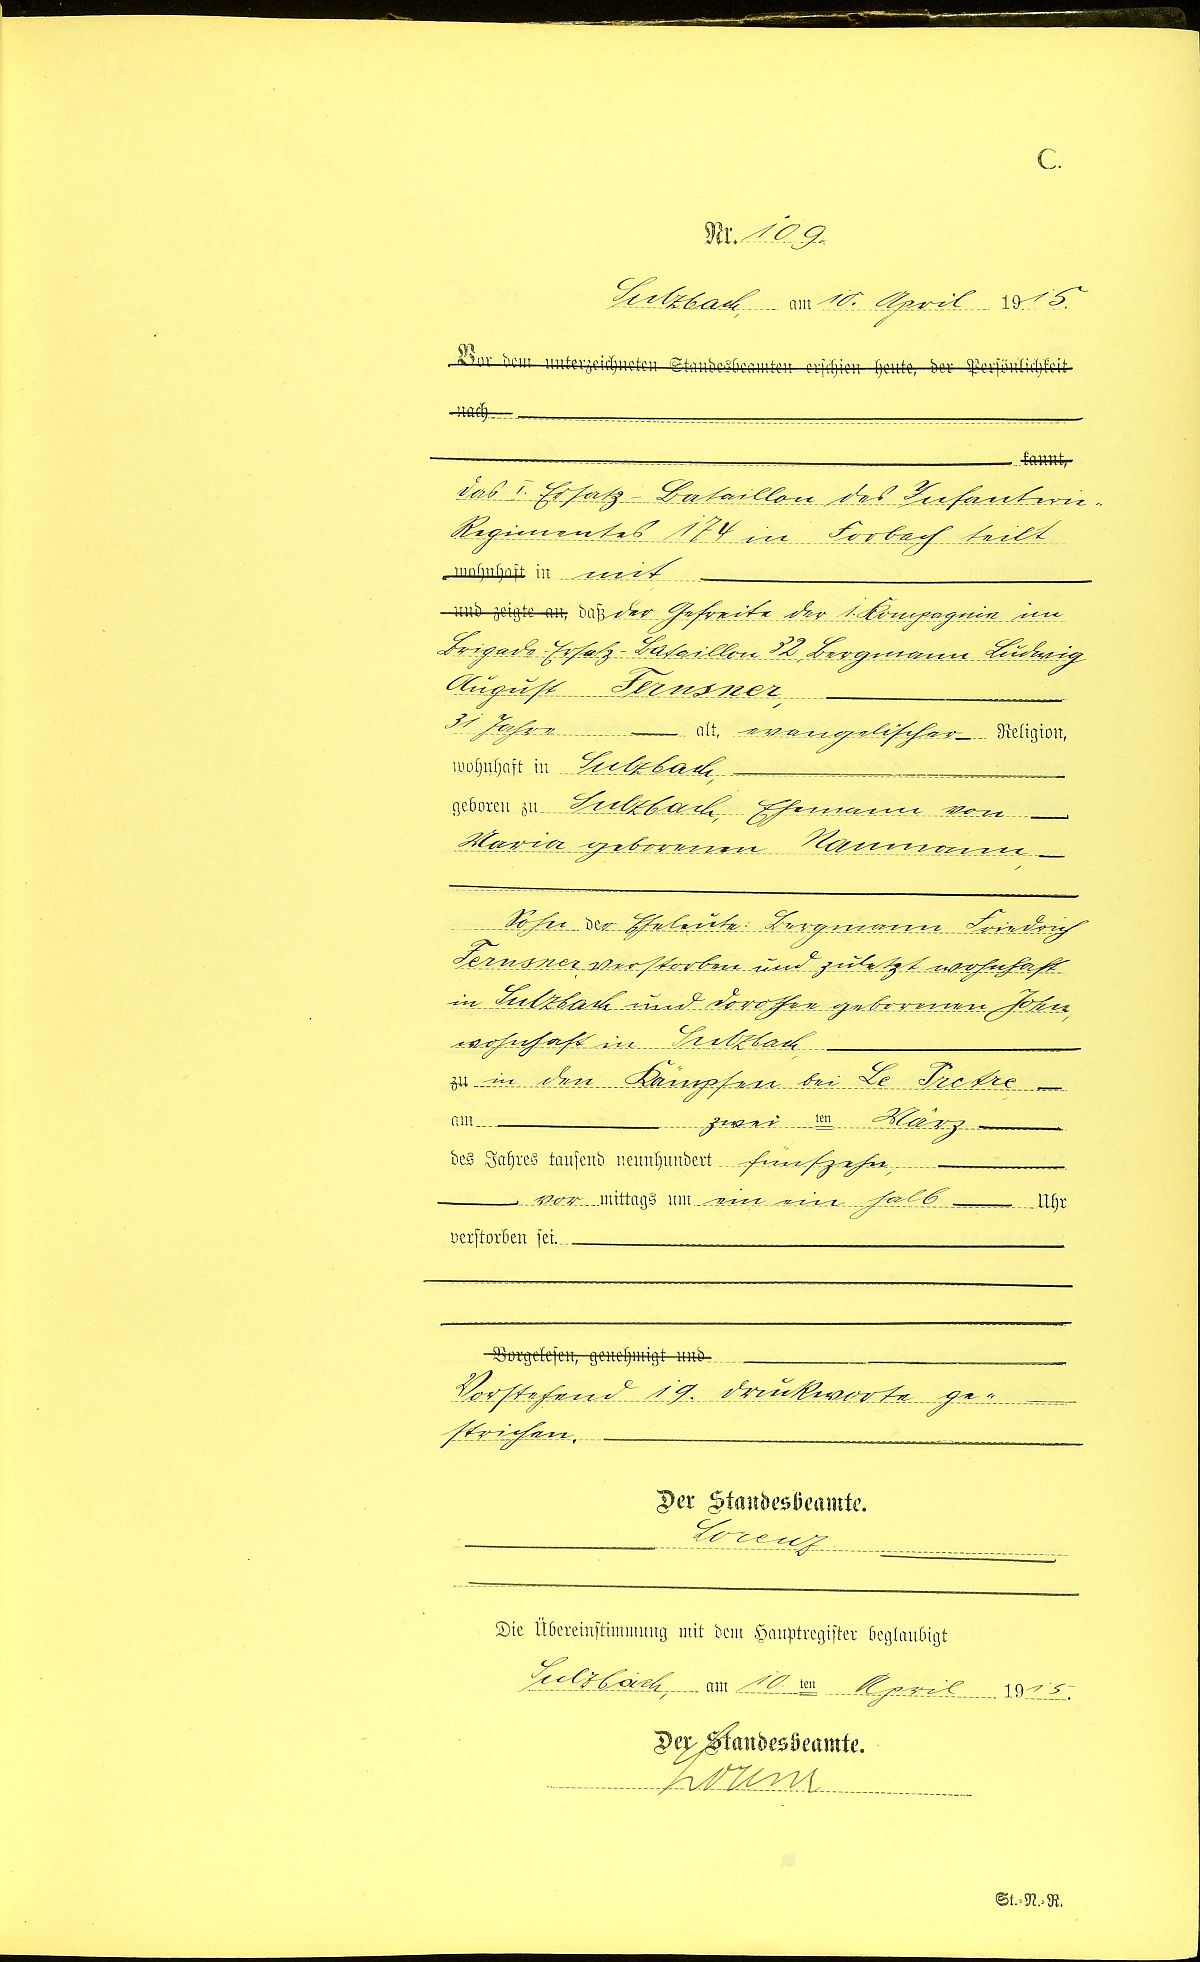 C.
Nr. 109.
Sulzbach, am 10. April 1915.
Vor dem unterzeichneten Standesbeamten erschien heute, der Persönlichkeit
nach
kannt,
das I. Ersatz-Bataillon des Infanterie-
Regimentes 174 in Forbach teilt
wohnhaft in mit
und zeigte an, daß der Gefreite der 1. Kompagnie im
Brigade-Ersatz-Bataillon 32, Bergmann Ludwig
August Fernsner,
31 Jahre alt, evangelischer Religion,
wohnhaft in Sulzbach,
geboren zu Sulzbach, Ehemann von
Maria geborenen Naumann,
Sohn der Eheleute: Bergmann Friedrich
Fernsner, verstorben und zuletzt wohnhaft
in Sulzbach und Dorothee geborenen John,
wohnhaft in Sulzbach,
zu in den Kämpfen bei Le Pretre
am zwei ten März
des Jahres tausend neunhundert fünfzehn,
vor mittags um ein ein halb Uhr
verstorben sei.
Vorgelesen, genehmigt und
Vorstehend 19. Druckworte ge-
strichen.
Der Standesbeamte.
Lorenz
Die Übereinstimmung mit dem Hauptregister beglaubigt
Sulzbach, am 10 ten April 1915.
Der Standesbeamte.
Lorenz
St.-N.-R.